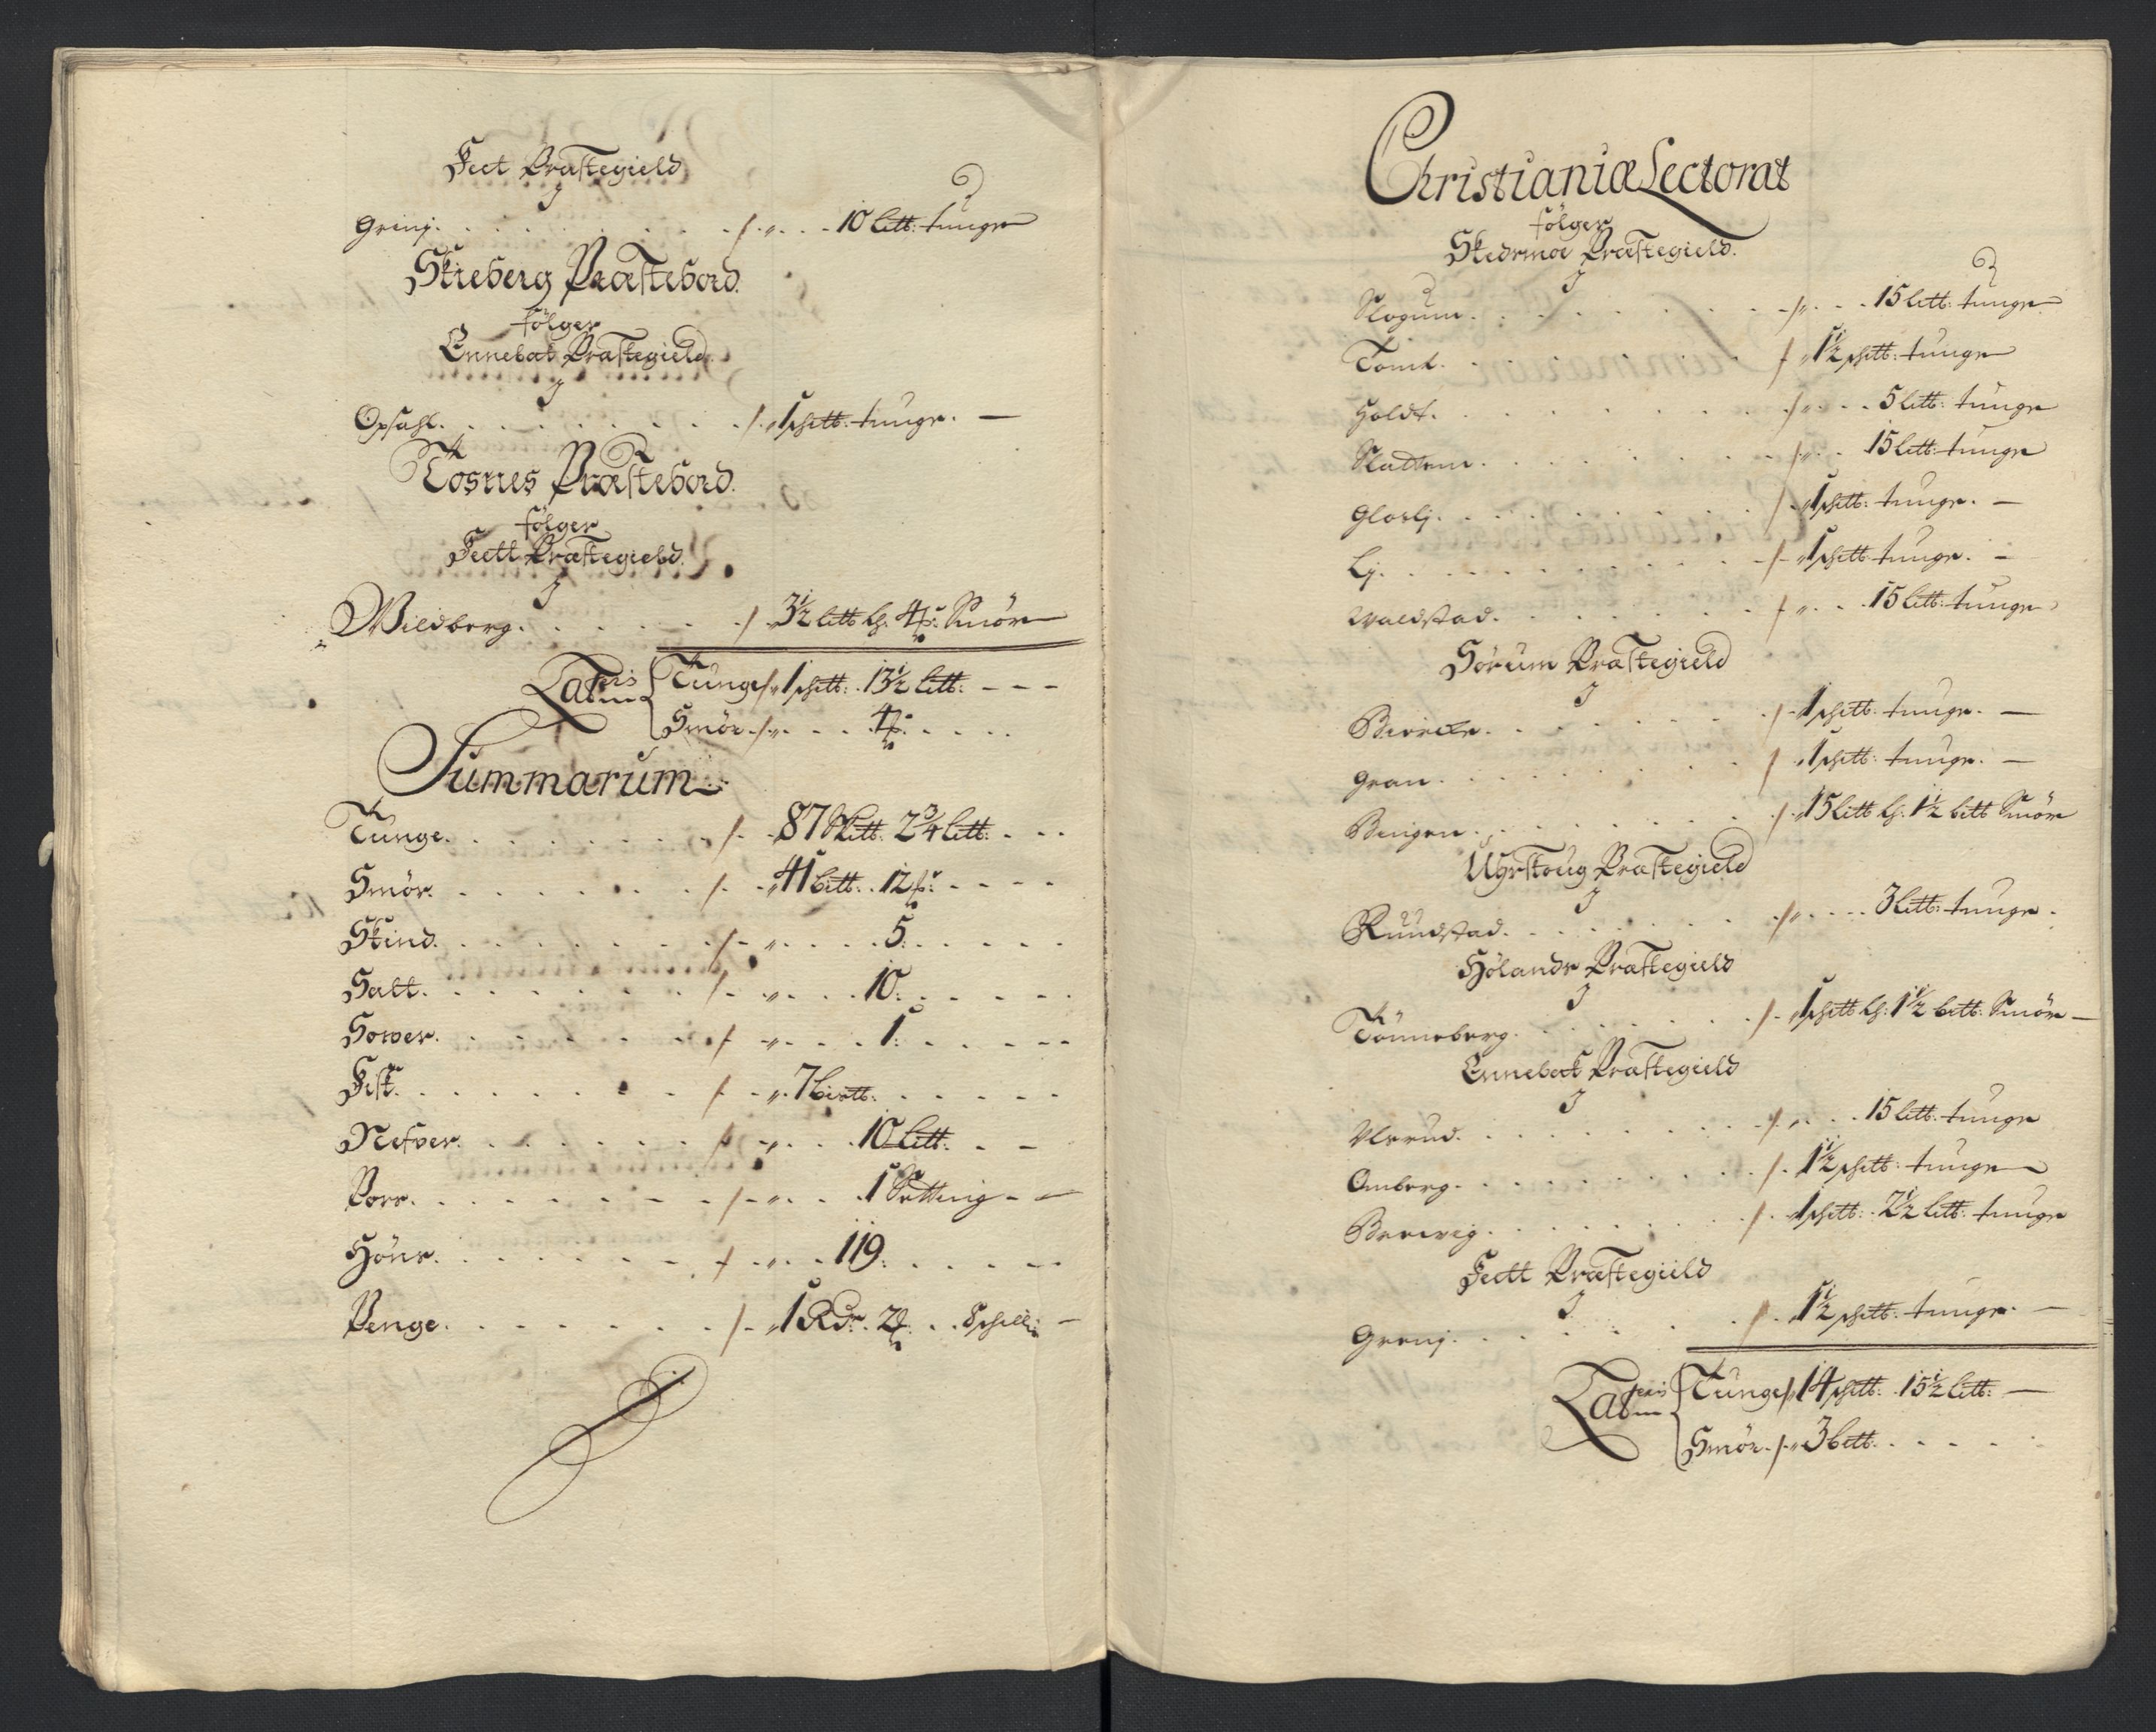 Feet Præstegield
J
Grinj. 10 Litt: tunge
Skieberg Præstebord.
følger
Ennebak Præstegield.
J
Opsahl. 1 schitt: tunge.
Tosnes Præstebord.
følger
Feett Præstegield.
J
Wieldberg. 3½ Litt h: 4 Smör
Lateris Tunge 1 schitt: 13½ Litt:
Smör 4
Summarum
Tunge. 87 Skitt: 2¾ Litt:
Smör. 41 bitt: 12
Skind. 5:
Salt. 10:
Sower. 1:
Fisk. 7 bitt:
Nefver. 10 Litt:
Korn. 1 Setting
Höns. 119:
Penge. 1 Rdr. 2 8 schill:
Christianiæ Lectorat
følger
Skedsmoe Præstegield.
J
Slogum. 15 Litt: tunge
Tomt. 1½ schitt: tunge
Holdt. 5 Litt: tunge
Slattum. 15 Litt: tunge
Gloslj. 1 schitt: tunge.
Lj. 1 schitt: tunge.
Waldstad. 15 Litt: tunge
Sörum Præstegield
J
Bierche. 1 schitt: tunge.
Gran. 1 schitt: tunge.
Bingen. 15 Litt h: 1½ bitt Smör
Uhrskoug Præstegield
J
Rundstad. 3 Litt: tunge.
Hölands Præstegield
J
Tönneberg. 1 schitt h: 1½ bitt: Smör
Ennebak Præstegield
J
Ulsrud. 15 Litt: tunge
Omberg. 1½ schitt: tunge
Brevig. 1 schitt: 2½ Litt: tunge
Feett Præstegield
J
Grenj. 1½ schitt: tunge.
Lateris Tunge 14 schitt: 15½ Litt:
Smör 3 bitt.